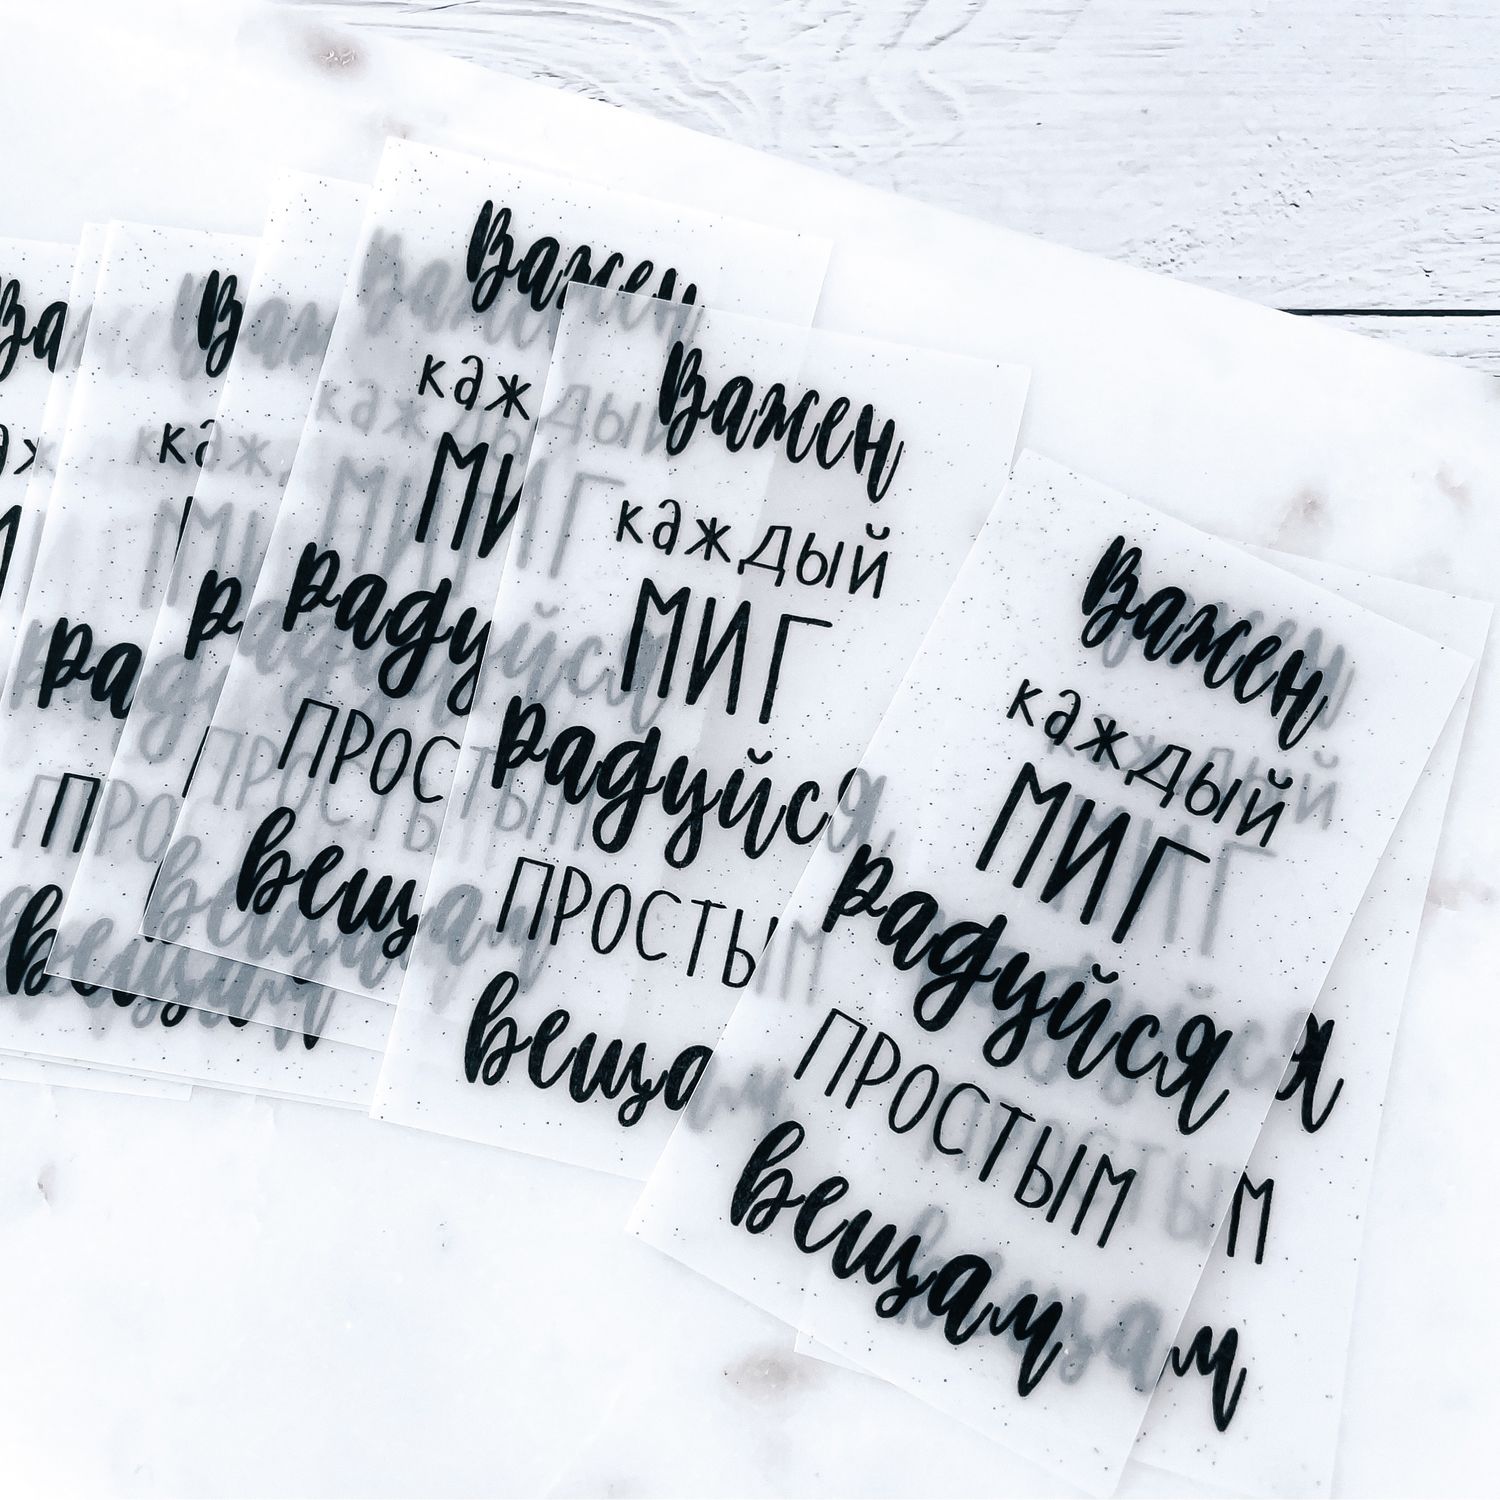 Важен
каждый
МИГ
радуйся
ПРОСТЫМ
вещам
Важен
каждый
МИГ
радуйся
ПРОСТЫМ
вещам
Важен
каждый
МИГ
радуйся
ПРОСТЫМ
вещам